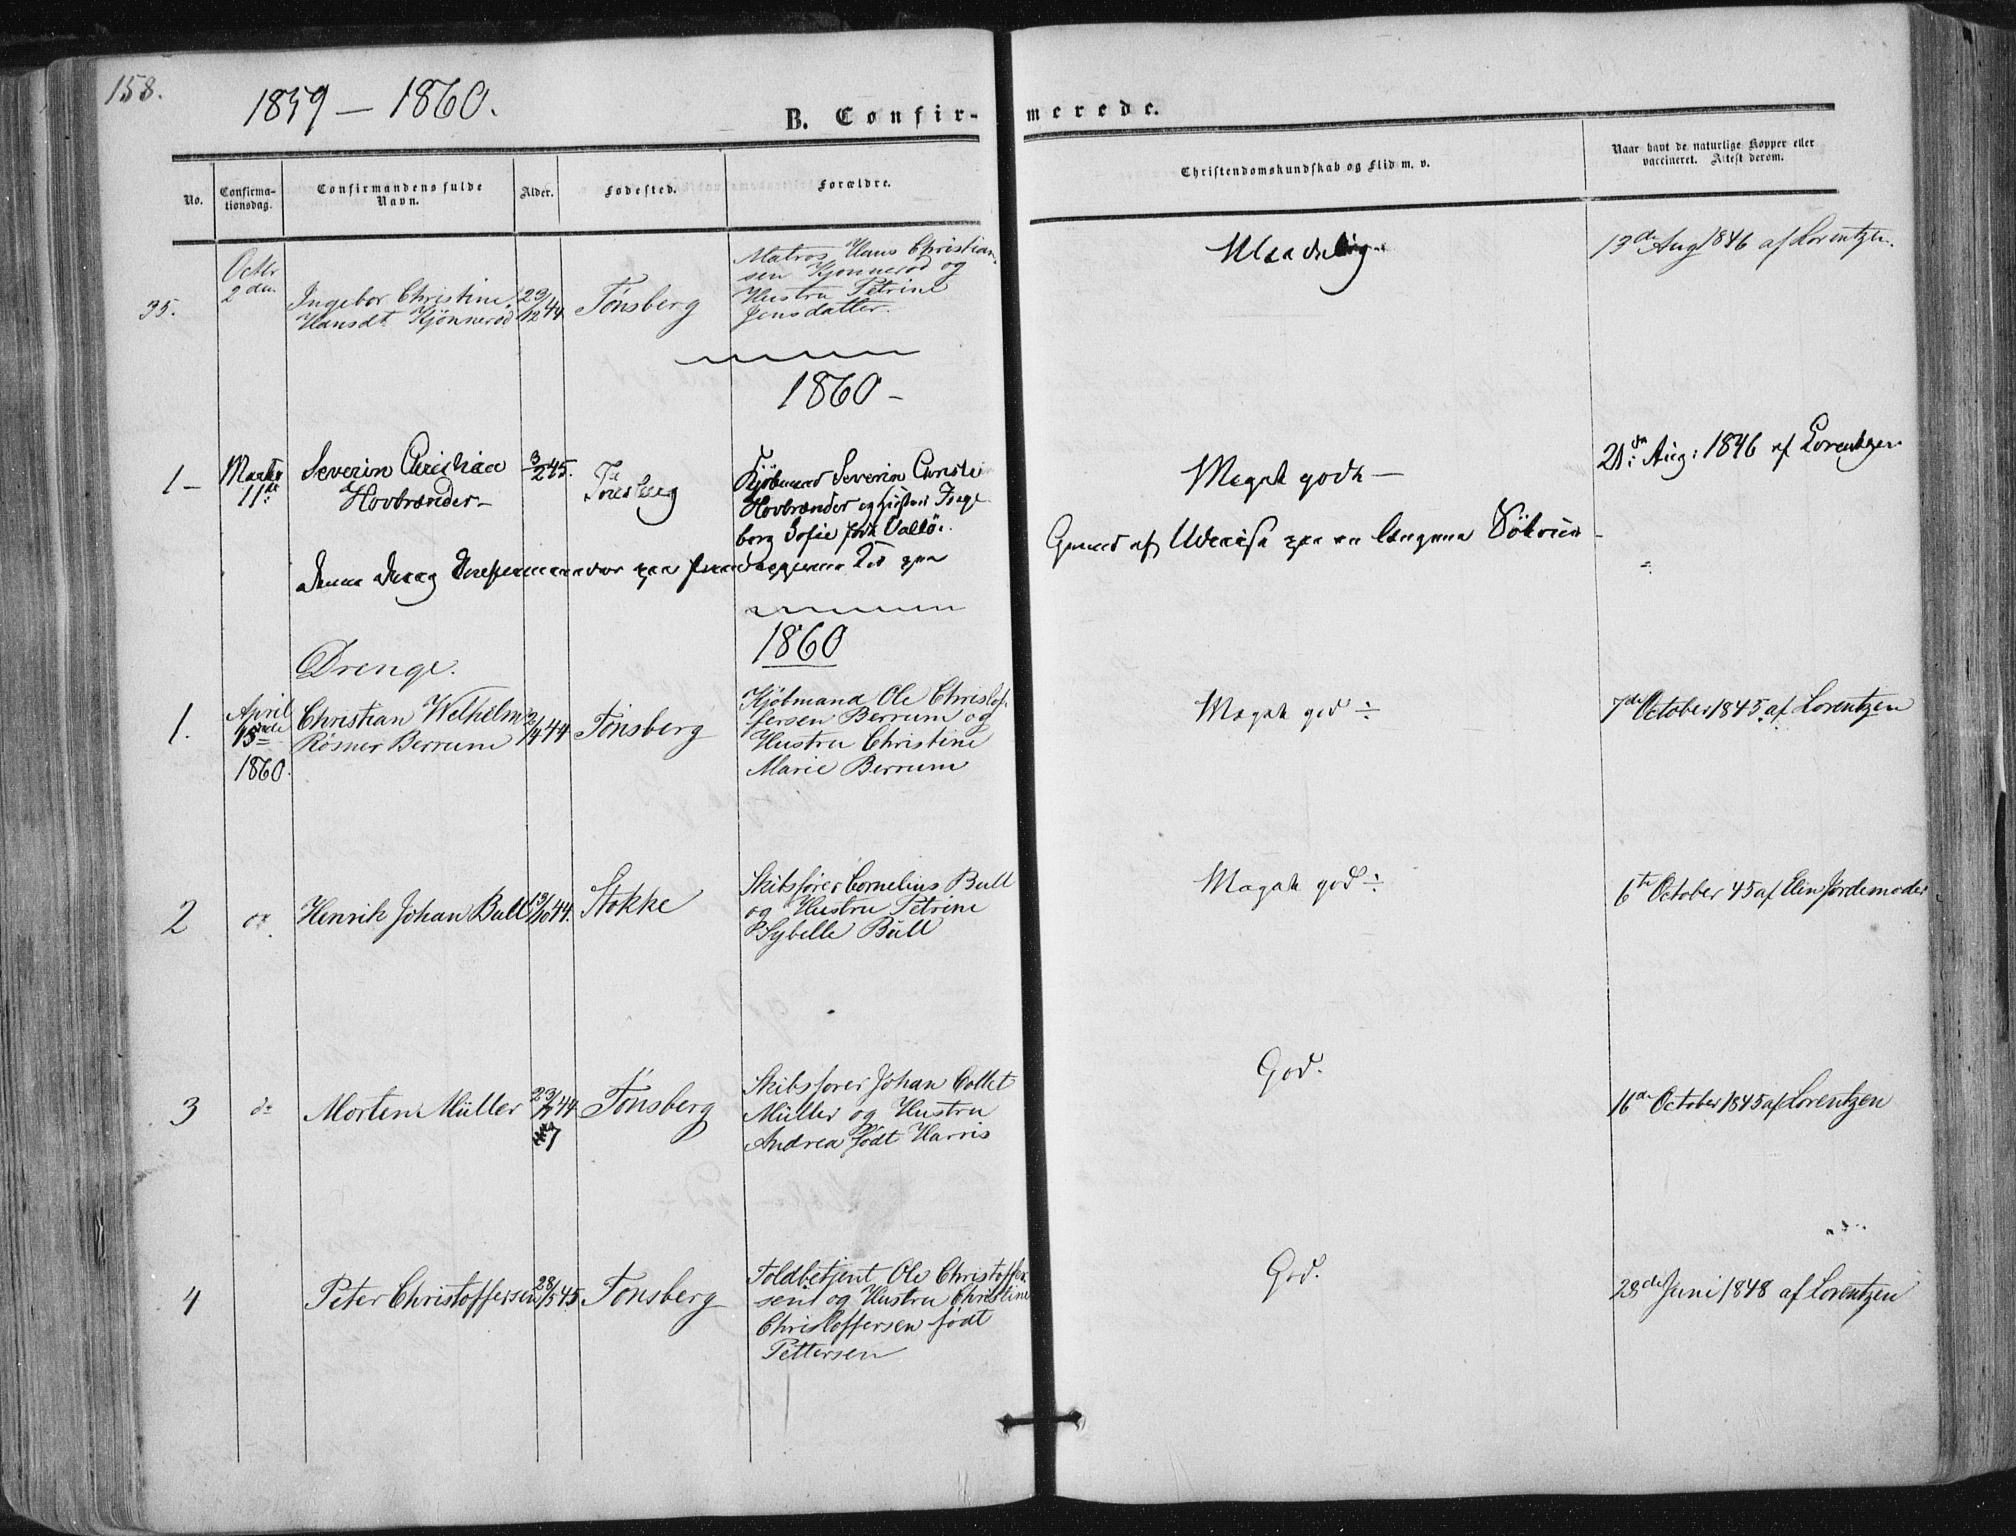 158.
1859 – 1860.
B. Confir-
merede.
No.
Confirma-
tionsdag.
Confirmandens fulde
Navn.
Alder.
Fødested.
Forældre.
Christendomskundskab og Flid m. v.
Naar havt de naturlige Kopper eller
vaccineret. Attest derom.
35.
Octbr
2den
Ingebor Christine
Hansdt. Kjønnerød
23/12 44.
Tønsberg
Matros Hans Christian-
sen Kjønnerød og
Hustru Petrine
Jensdatter.
Maadelig
13de Aug 1846 af Lorentzen.
1860 –
1 –
Marts
11te
Severin Christian
Hovbrænder –
3/2 45.
Tønsberg
Kjöbmand Severin Christi
Hovbrænder og Hustru Inge
borg Sofie født Vallö.
Meget godt –
21de Aug: 1846 af Lorentzen
Denne Dreng confirmeredes paa Fredag
Grund af Udreise paa en længere Söreise –
1860
Drenge.
1.
April
15nde
1860.
Christian Welhelm
Røsner Berrum
2/4 44
Tönsberg
Kjøbmand Ole Christof-
fersen Berrum og
Hustru Christine
Marie Berrum
Meget god ÷
7de October 1845 af Lorentzen
2
do.
Henrik Johan Bull
13/10 44.
Stokke
Skibsfører Cornelius Bull
og Hustru Petrine
Sybelle Bull
Meget god ÷
6te October 45 af Elin Jordemoder
3
do
Morten Müller
23/7 44.
7
Tönsberg
Skibsfører Johan Collet
Müller og Hustru
Andrea født Harris
God.
16de October 1845 af Lorentzen
4
Peter Christoffersen
28/5 45.
Tönsberg
Toldbetjent Ole Christoffer
sen og Hustru Christine
Christoffersen født
Pettersen
God.
28de Juni 1848 af Lorentzen